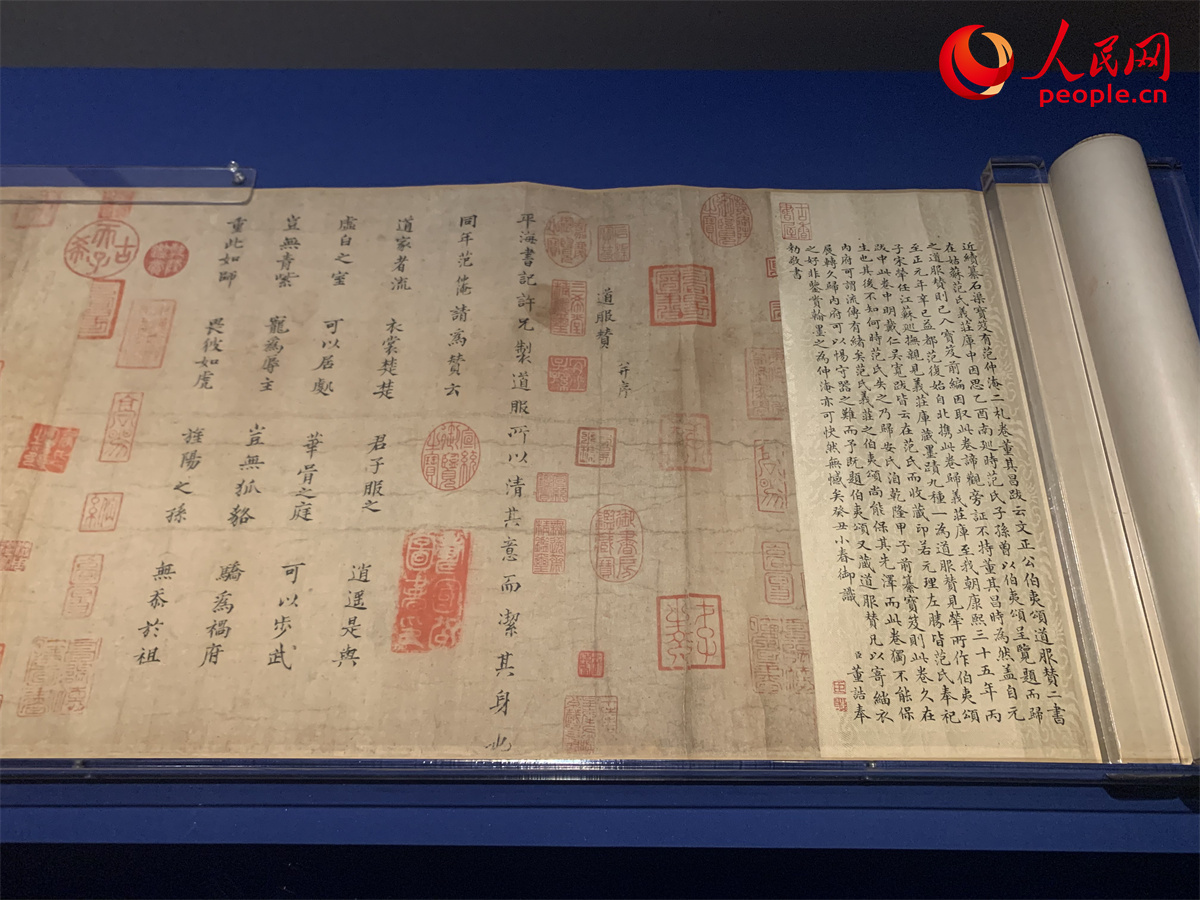 人民网
people.cn
近續纂石渠寶笈有范仲淹二札卷董其昌跋云文正公伯夷頌道服贊二書
在姑蘇范氏義莊庫中因思乙酉南廵時范氏子孫曾以伯夷頌呈覽題而歸
之道服贊則已入寶笈前編因取此卷諦觀旁証不特董其昌時為然蓋自元
至正元年辛巳益都范復始自北携此卷歸義莊庫至我朝康熙三十五年丙
子宋犖任江蘇廵撫親見義莊庫藏墨蹟九種一為道服贊見犖所作伯夷頌
跋中此卷中明戴仁吳寬跋皆云在范氏而收藏印若元理左騰皆范氏奉祀
生也其後不知何時范氏失之乃歸安氏洎乾隆甲子前纂寶笈則此卷久在
內府可謂流傳有緒矣范氏義莊之伯夷頌尚能保其先澤而此卷獨不能保
展轉久歸內府可以惕守器之難而予既題伯夷頌又藏道服贊凡以寄緇衣
之好非鑒賞翰墨之為仲淹亦可快然無憾矣癸丑小春御識
臣董誥奉
勅敬書
道服贊 并序
平海書記許兄製道服所以清其意而潔其身也
同年范仲淹請為贊云
道家者流 衣裳楚楚 君子服之 逍遥是與
虛白之室 可以居處 華胥之庭 可以步武
豈無青紫 寵為辱主 豈無狐貉 驕為禍府
重此如師 畏彼如虎 旌陽之孫 無忝於祖